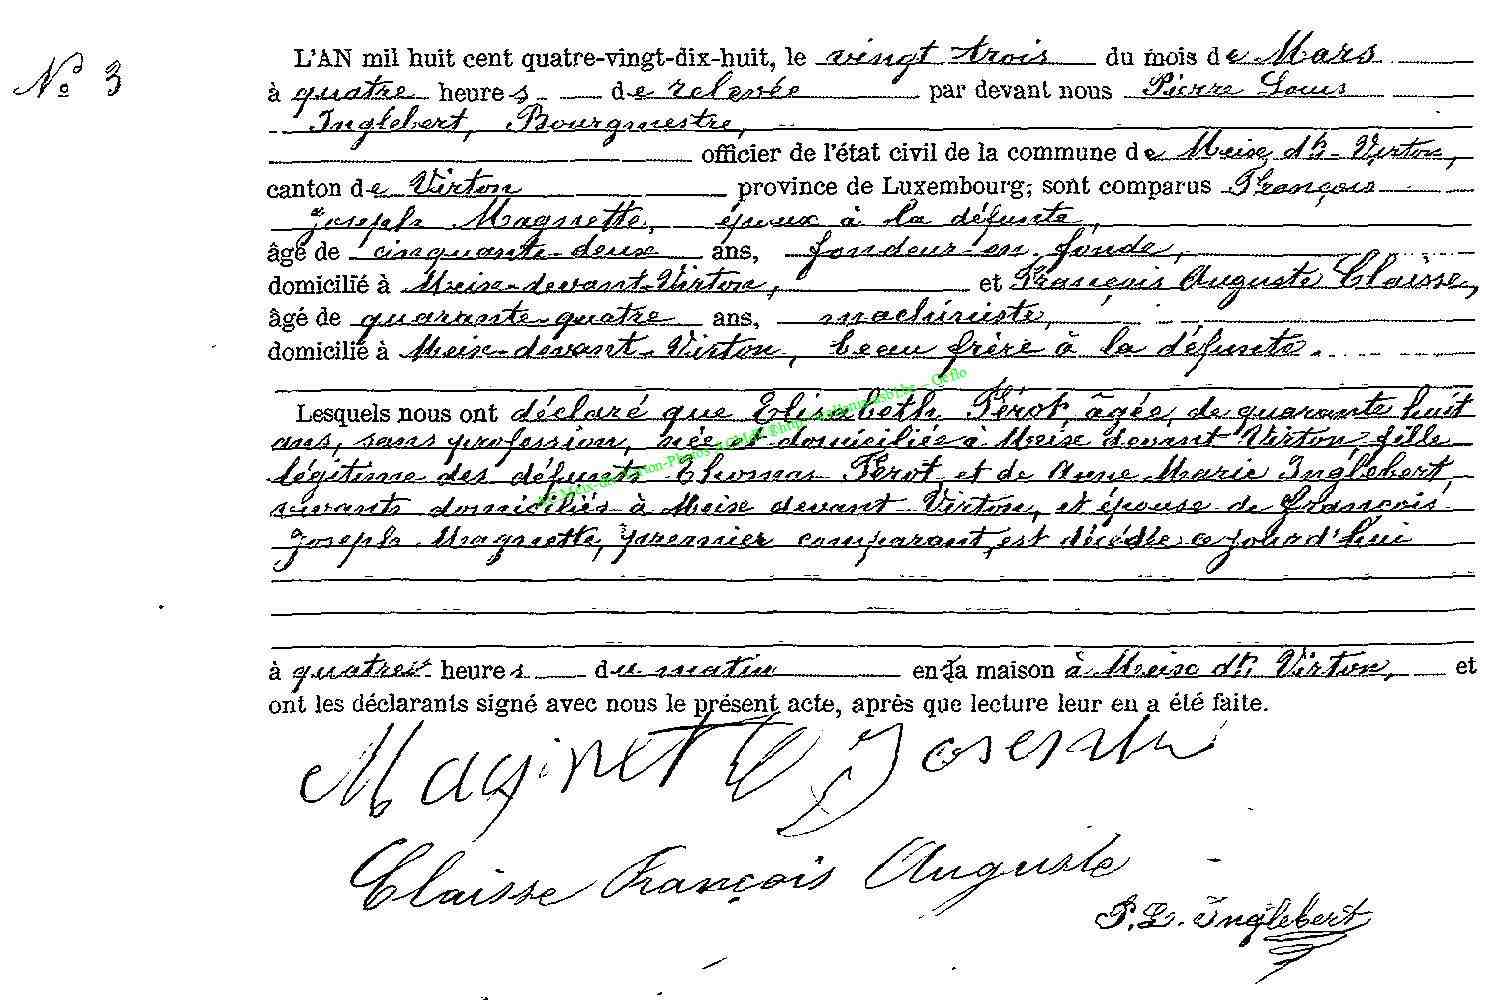 N° 3
L'AN mil huit cent quatre-vingt-dix-huit, le vingt trois du mois de Mars
à quatre heures de relevée par devant nous Pierre Louis
Inglebert, Bourgmestre,
officier de l'état civil de la commune de Meix dt Virton,
canton de Virton province de Luxembourg; sont comparus François
Joseph Magnette, époux à la défunte,
âgé de cinquante-deux ans, fondeur en fonde,
domicilié à Meix-devant-Virton, et François Auguste Claisse,
âgé de quarante-quatre ans, machiniste,
domicilié à Meix-devant-Virton, beau frère à la défunte.
Lesquels nous ont déclaré que Elisabeth Pérot, âgée de quarante huit
ans, sans profession, née et domiciliée à Meix devant Virton, fille
légitime des défunts Thomas Pérot et de Anne Marie Inglebert,
vivants domiciliés à Meix devant Virton, et épouse de françois
Joseph Magnette, premier comparant, est décédée ce jourd'hui
à quatre heures du matin en la maison à Meix dt Virton, et
ont les déclarants signé avec nous le présent acte, après que lecture leur en a été faite.
Maginette Joseph
Claisse François Auguste
P. L. Inglebert